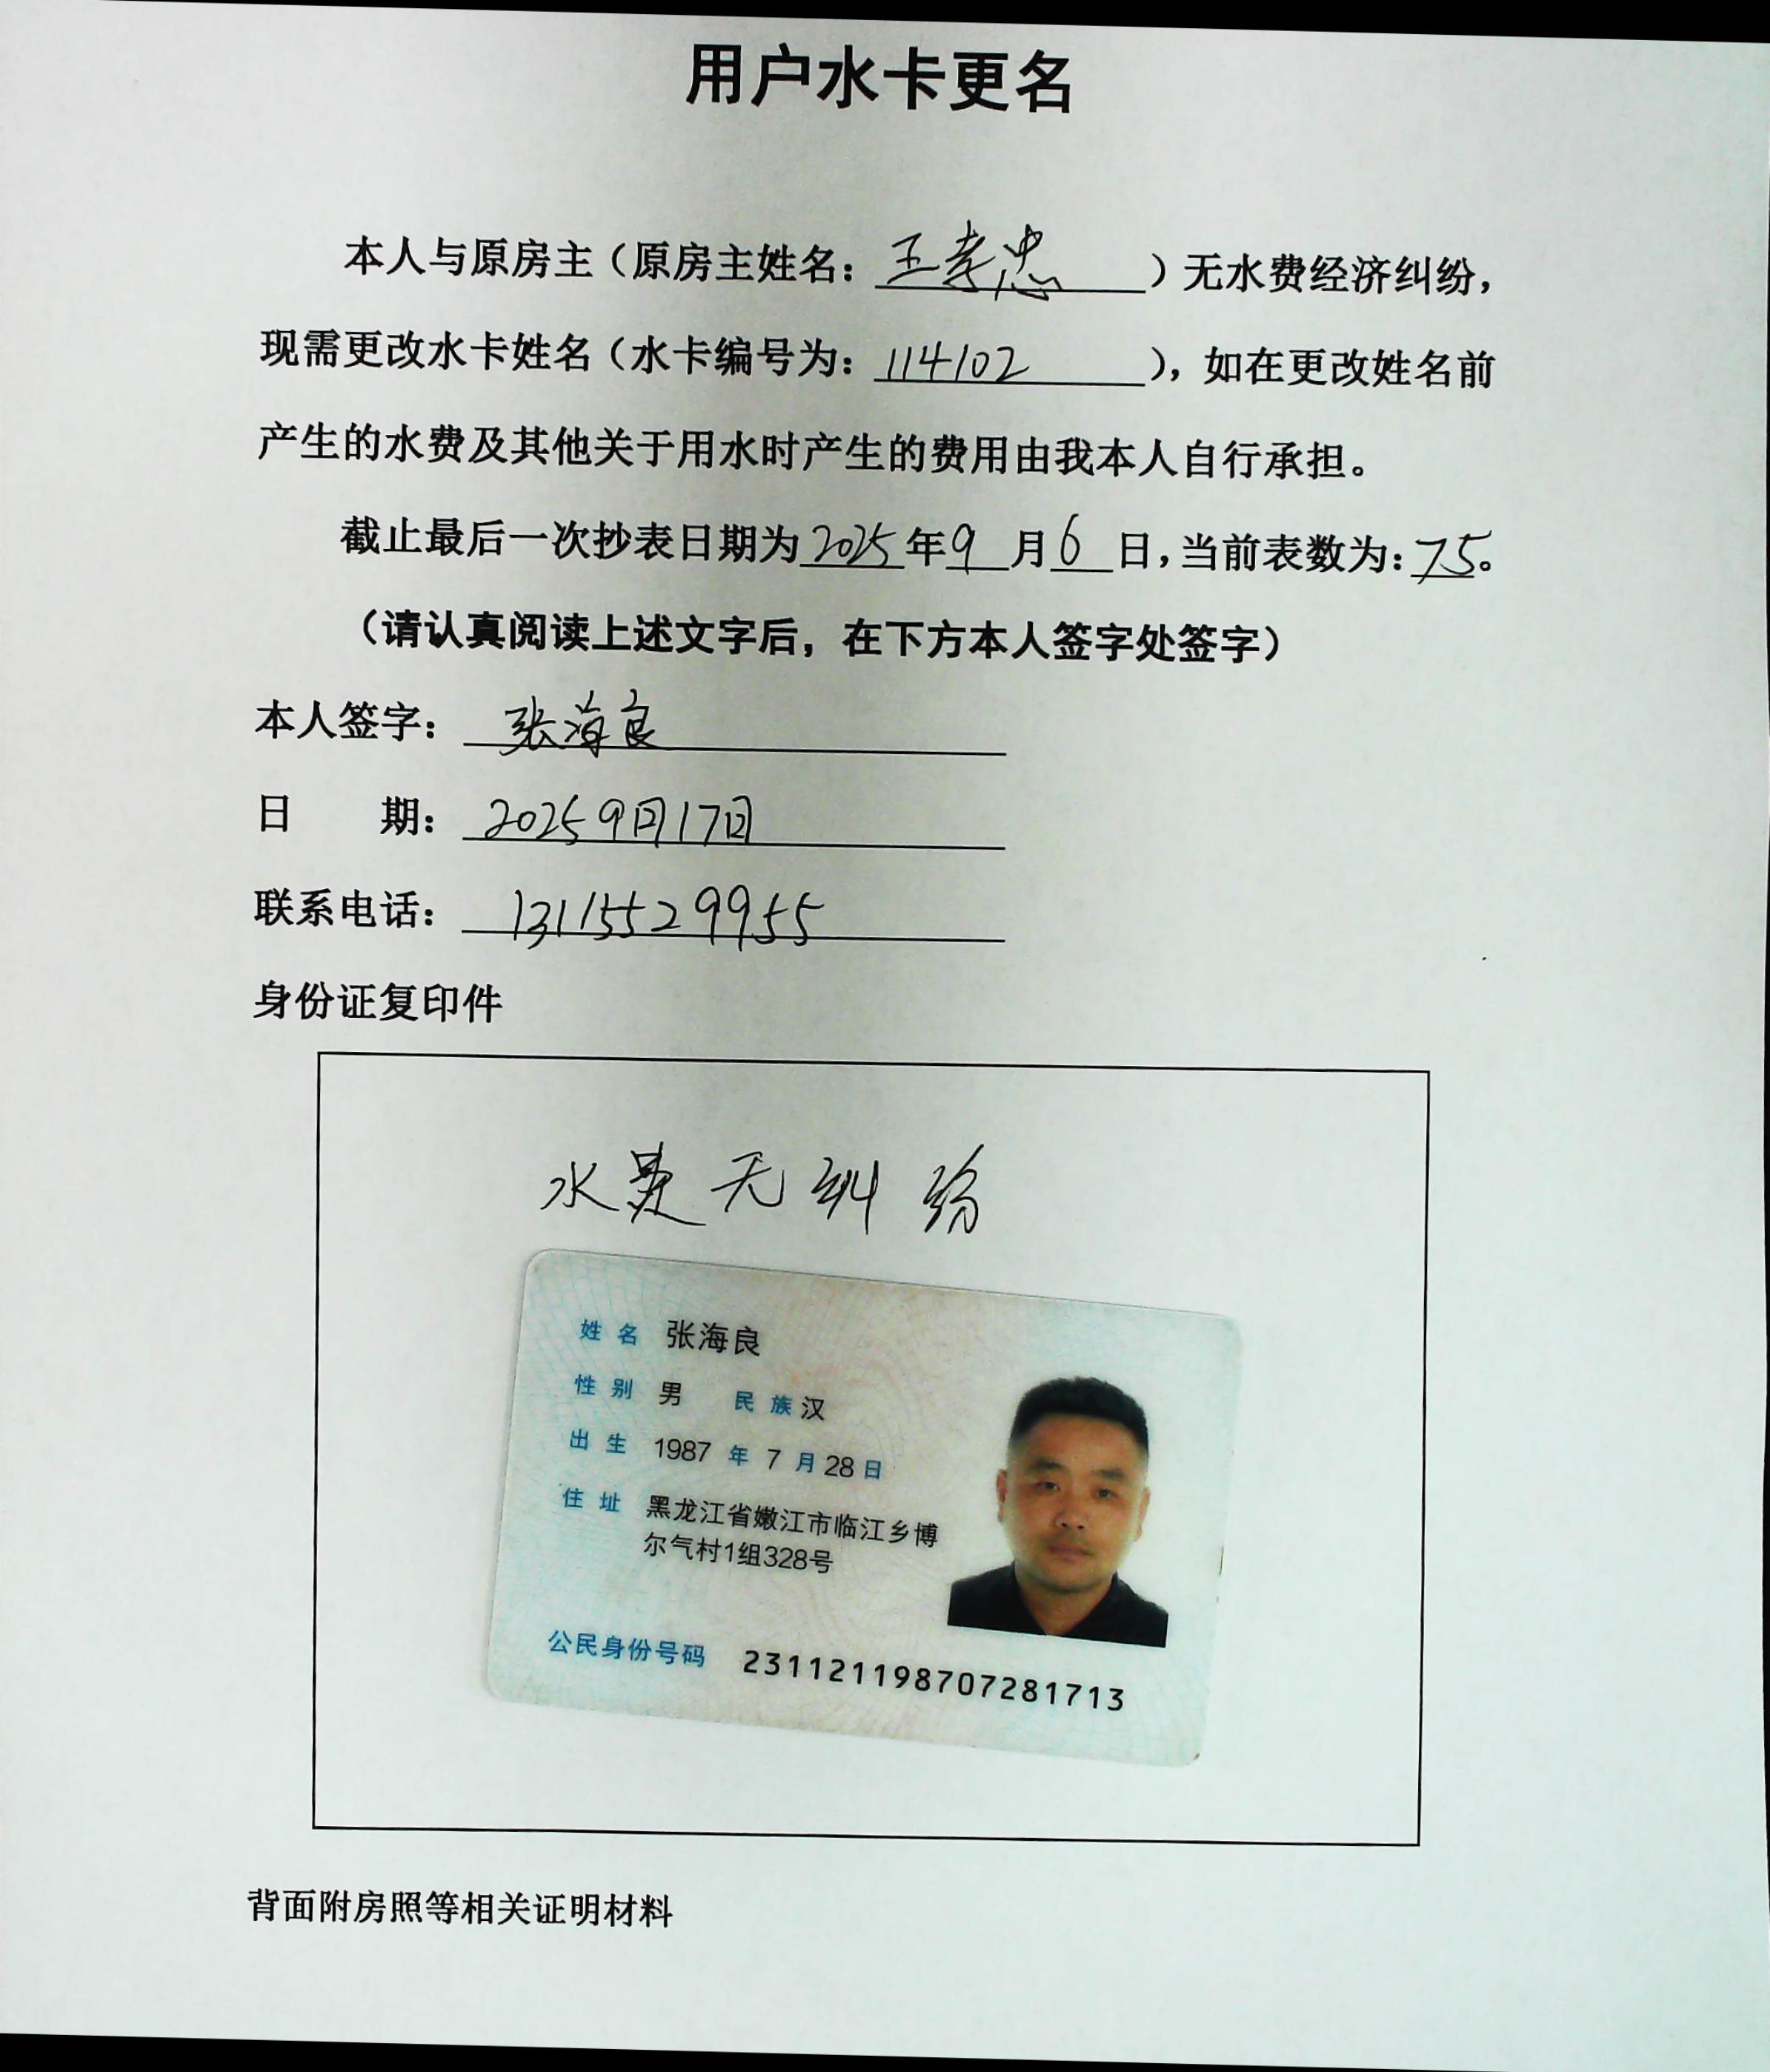 用户水卡更名
本人与原房主（原房主姓名：王孝忠）无水费经济纠纷，
现需更改水卡姓名（水卡编号为：114102），如在更改姓名前
产生的水费及其他关于用水时产生的费用由我本人自行承担。
截止最后一次抄表日期为2025年9月6日，当前表数为：75。
（请认真阅读上述文字后，在下方本人签字处签字）
本人签字：张海良
日 期：2025 9月17日
联系电话：13115529955
身份证复印件
水 无纠纷
姓名 张海良
性别 男 民族 汉
出生 1987年7月28日
住址 黑龙江省嫩江市临江乡博
尔气村1组328号
公民身份号码 231121198707281713
背面附房照等相关证明材料